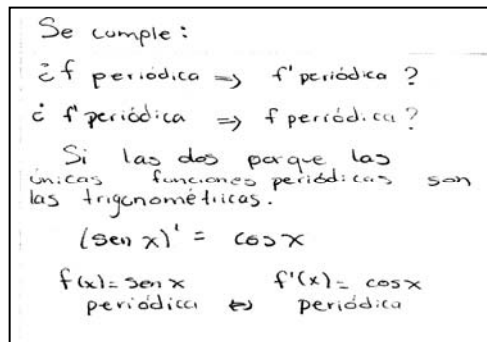 Se cumple:
¿f periódica => f' periódica?
¿ f' periódica => f periódica?
Si las dos porque las
únicas funciones periódicas son
las trigonométricas.
(sen x)' = cosx
f(x)= sen x f'(x)= cosx
periódica <=> periódica